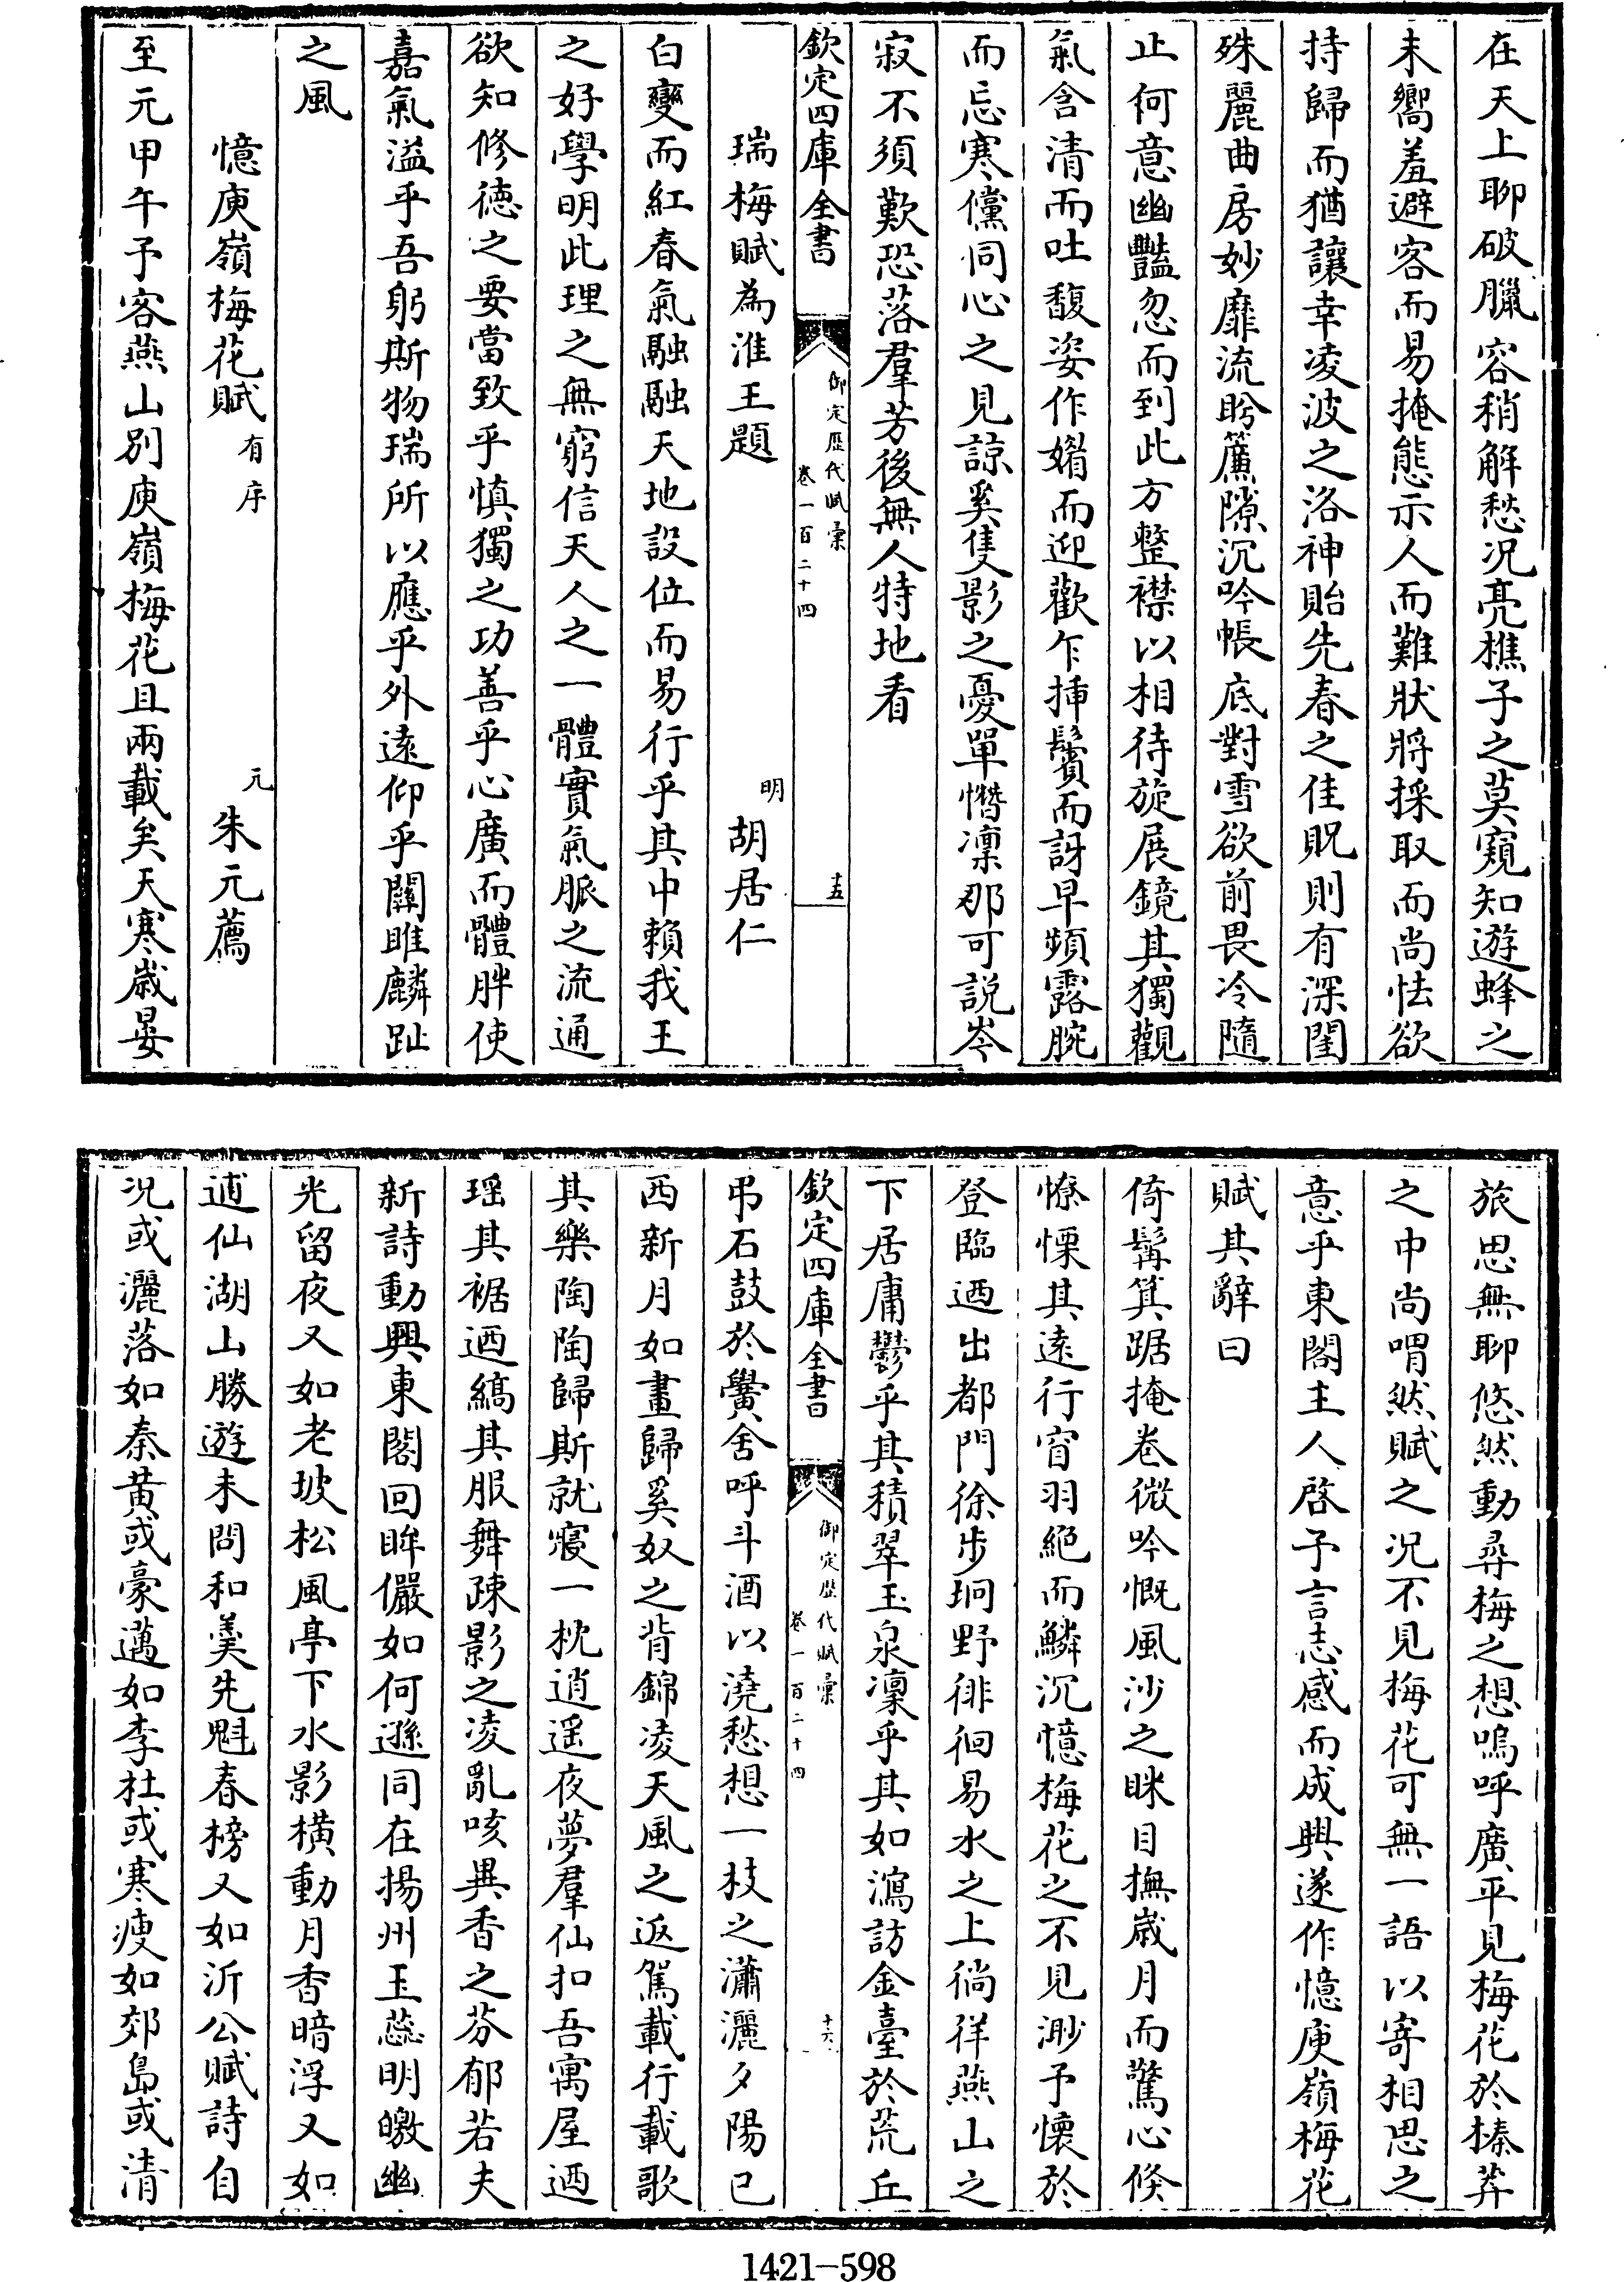 在天上聊破臘容稍解愁况亮樵子之莫窺知遊蜂之
未嚮羞避客而易掩態示人而難狀將採取而尚怯欲
持歸而猶讓幸凌波之洛神貽先春之佳貺則有深閨
殊麗曲房妙靡流盻簾隙沉吟帳底對雪欲前畏冷隨
止何意幽豔忽而到此方整襟以相待旋展鏡其獨觀
氣含清而吐馥姿作媚而迎歡乍揷鬢而訝早頻露腕
而忘寒儻同心之見諒奚隻影之憂單憯凜那可説岑
寂不須歎恐落羣芳後無人特地看
欽定四庫全書
御定歴代賦彙
卷一百二十四
十五
瑞梅賦為淮王題
明
胡居仁
白變而紅春氣融融天地設位而易行乎其中賴我王
之好學明此理之無窮信天人之一體實氣脈之流通
欲知修徳之要當致乎慎獨之功善乎心廣而體胖使
嘉氣溢乎吾躬斯物瑞所以應乎外逺仰乎關雎麟趾
之風
憶庾嶺梅花賦有序
元
朱元薦
至元甲午予客燕山別庾嶺梅花且兩載矣天寒歳晏
旅思無聊悠然動尋梅之想嗚呼廣平見梅花於榛莽
之中尚喟然賦之况不見梅花可無一語以寄相思之
意乎東閣主人啓予言志感而成興遂作憶庾嶺梅花
賦其辭曰
倚髯箕踞掩巻微吟慨風沙之眯目撫歳月而驚心倐
憭慄其逺行窅羽絶而鱗沉憶梅花之不見渺予懷於
登臨迺出都門徐歩坰野徘徊易水之上徜徉燕山之
下居庸鬱乎其積翠玉泉凜乎其如瀉訪金臺於荒丘
欽定四庫全書
御定歴代賦彙
卷一百二十四
十六
弔石鼓於黌舍呼斗酒以澆愁想一枝之瀟灑夕陽已
西新月如畫歸奚奴之背錦凌天風之返駕載行載歌
其樂陶陶歸斯就寢一枕逍遥夜夢羣仙扣吾寓屋迺
瑶其裾迺縞其服舞疎影之凌亂咳異香之芬郁若夫
新詩動興東閣回眸儼如何遜同在揚州玉蕊明皦幽
光留夜又如老坡松風亭下水影横動月香暗浮又如
逋仙湖山勝遊未問和羹先魁春榜又如沂公賦詩自
况或灑落如秦黄或豪邁如李杜或寒痩如郊島或清
1421—598